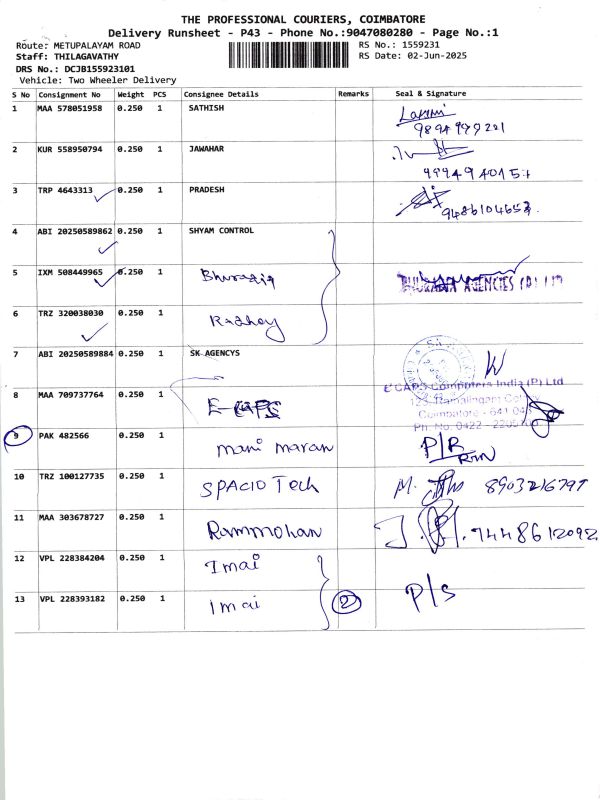 THE PROFESSIONAL COURIERS, COIMBATORE
Delivery Runsheet - P43 - Phone No.:9047080280 - Page No.:1
Route: METUPALAYAM ROAD
RS No.: 1559231
Staff: THILAGAVATHY
RS Date: 02-Jun-2025
DRS No.: DCJB155923101
Vehicle: Two Wheeler Delivery
S No Consignment No Weight PCS Consignee Details Remarks Seal & Signature
1 MAA 578051958 0.250 1 SATHISH
2 KUR 558950794 0.250 1 JAWAHAR
3 TRP 4643313 0.250 1 PRADESH
9486104653
4 ABI 20250589862 0.250 1 SHYAM CONTROL
5 IXM 508449965 0.250 1 AGENCIES (P) LTD
6 TRZ 320038030 0.250 1
7 ABI 20250589884 0.250 1 SK AGENCYS
8 MAA 709737764 0.250 1 E-CAPS
e'CAPS Computers India (P) Ltd
Coimbatore - 641
9 PAK 482566 0.250 1 mani maran P/R
10 TRZ 100127735 0.250 1 SPACIO Tech 8903216797
11 MAA 303678727 0.250 1 Rammohan 9448612092
12 VPL 228384204 0.250 1 Imai
13 VPL 228393182 0.250 1 Imai 2 P/S